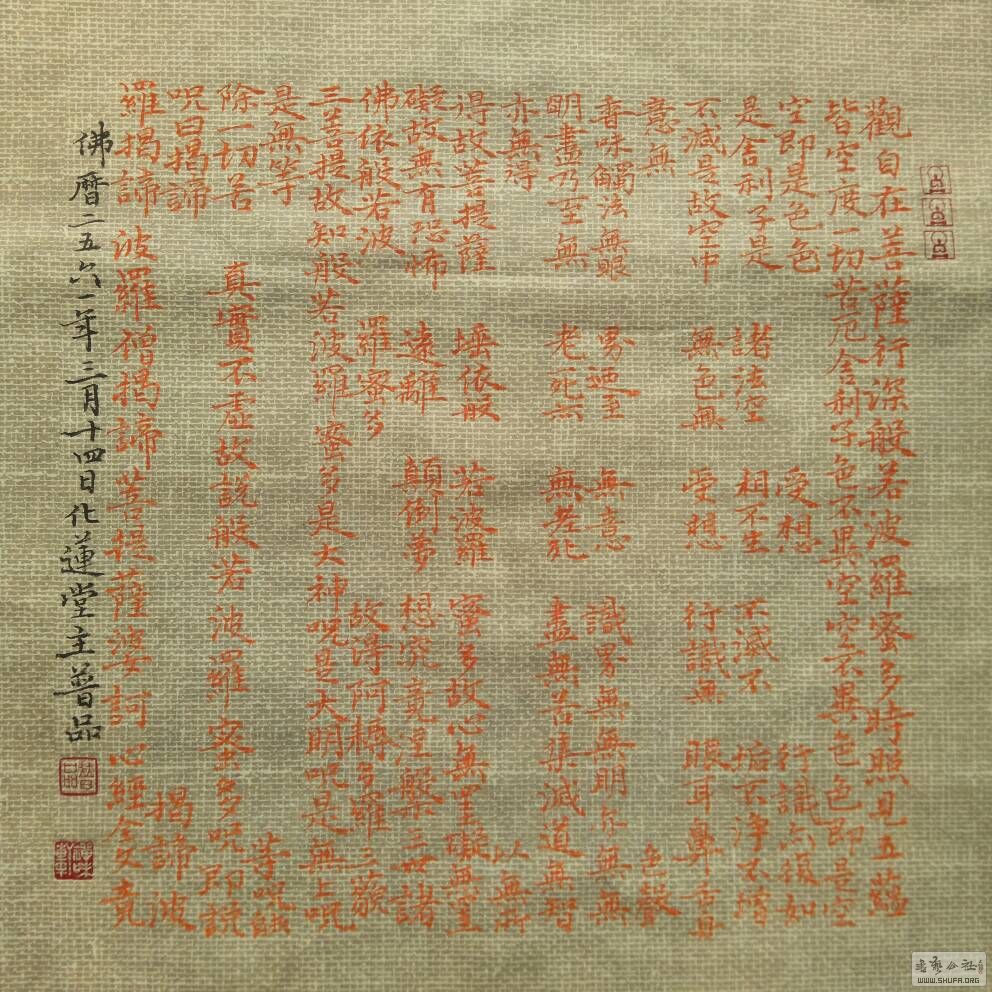 觀自在菩薩行深般若波羅蜜多時照見五蘊
皆空度一切苦厄舍利子色不異空空不異色色即是空
空即是色色 受想 行識亦復如
是舍利子是 諸法空 相不生 不滅不 垢不淨不增
不減是故空中 無色無 受想 行識無 眼耳鼻舌身
意無 色聲
香味觸法無眼 界迺至 無意 識界無無明亦無無
明盡乃至無 老死亦 無老死 盡無苦集滅道無智
亦無得 以無所
得故菩提薩 埵依般 若波羅 蜜多故心無罣礙無罣
礙故無有恐怖 遠離 顛倒夢 想究竟涅槃三世諸
佛依般若波 羅蜜多 故得阿耨多羅三藐
三菩提故知般若波羅蜜多是大神呪是大明呪是無上呪
是無等 等呪能
除一切苦 真實不虛故說般若波羅蜜多呪即說
呪曰揭諦 揭諦波
羅揭諦 波羅僧揭諦菩提薩婆訶 心經全文竟
佛曆二五六一年三月十四日化蓮堂主普品
普品
WWW.SHUFA.ORG